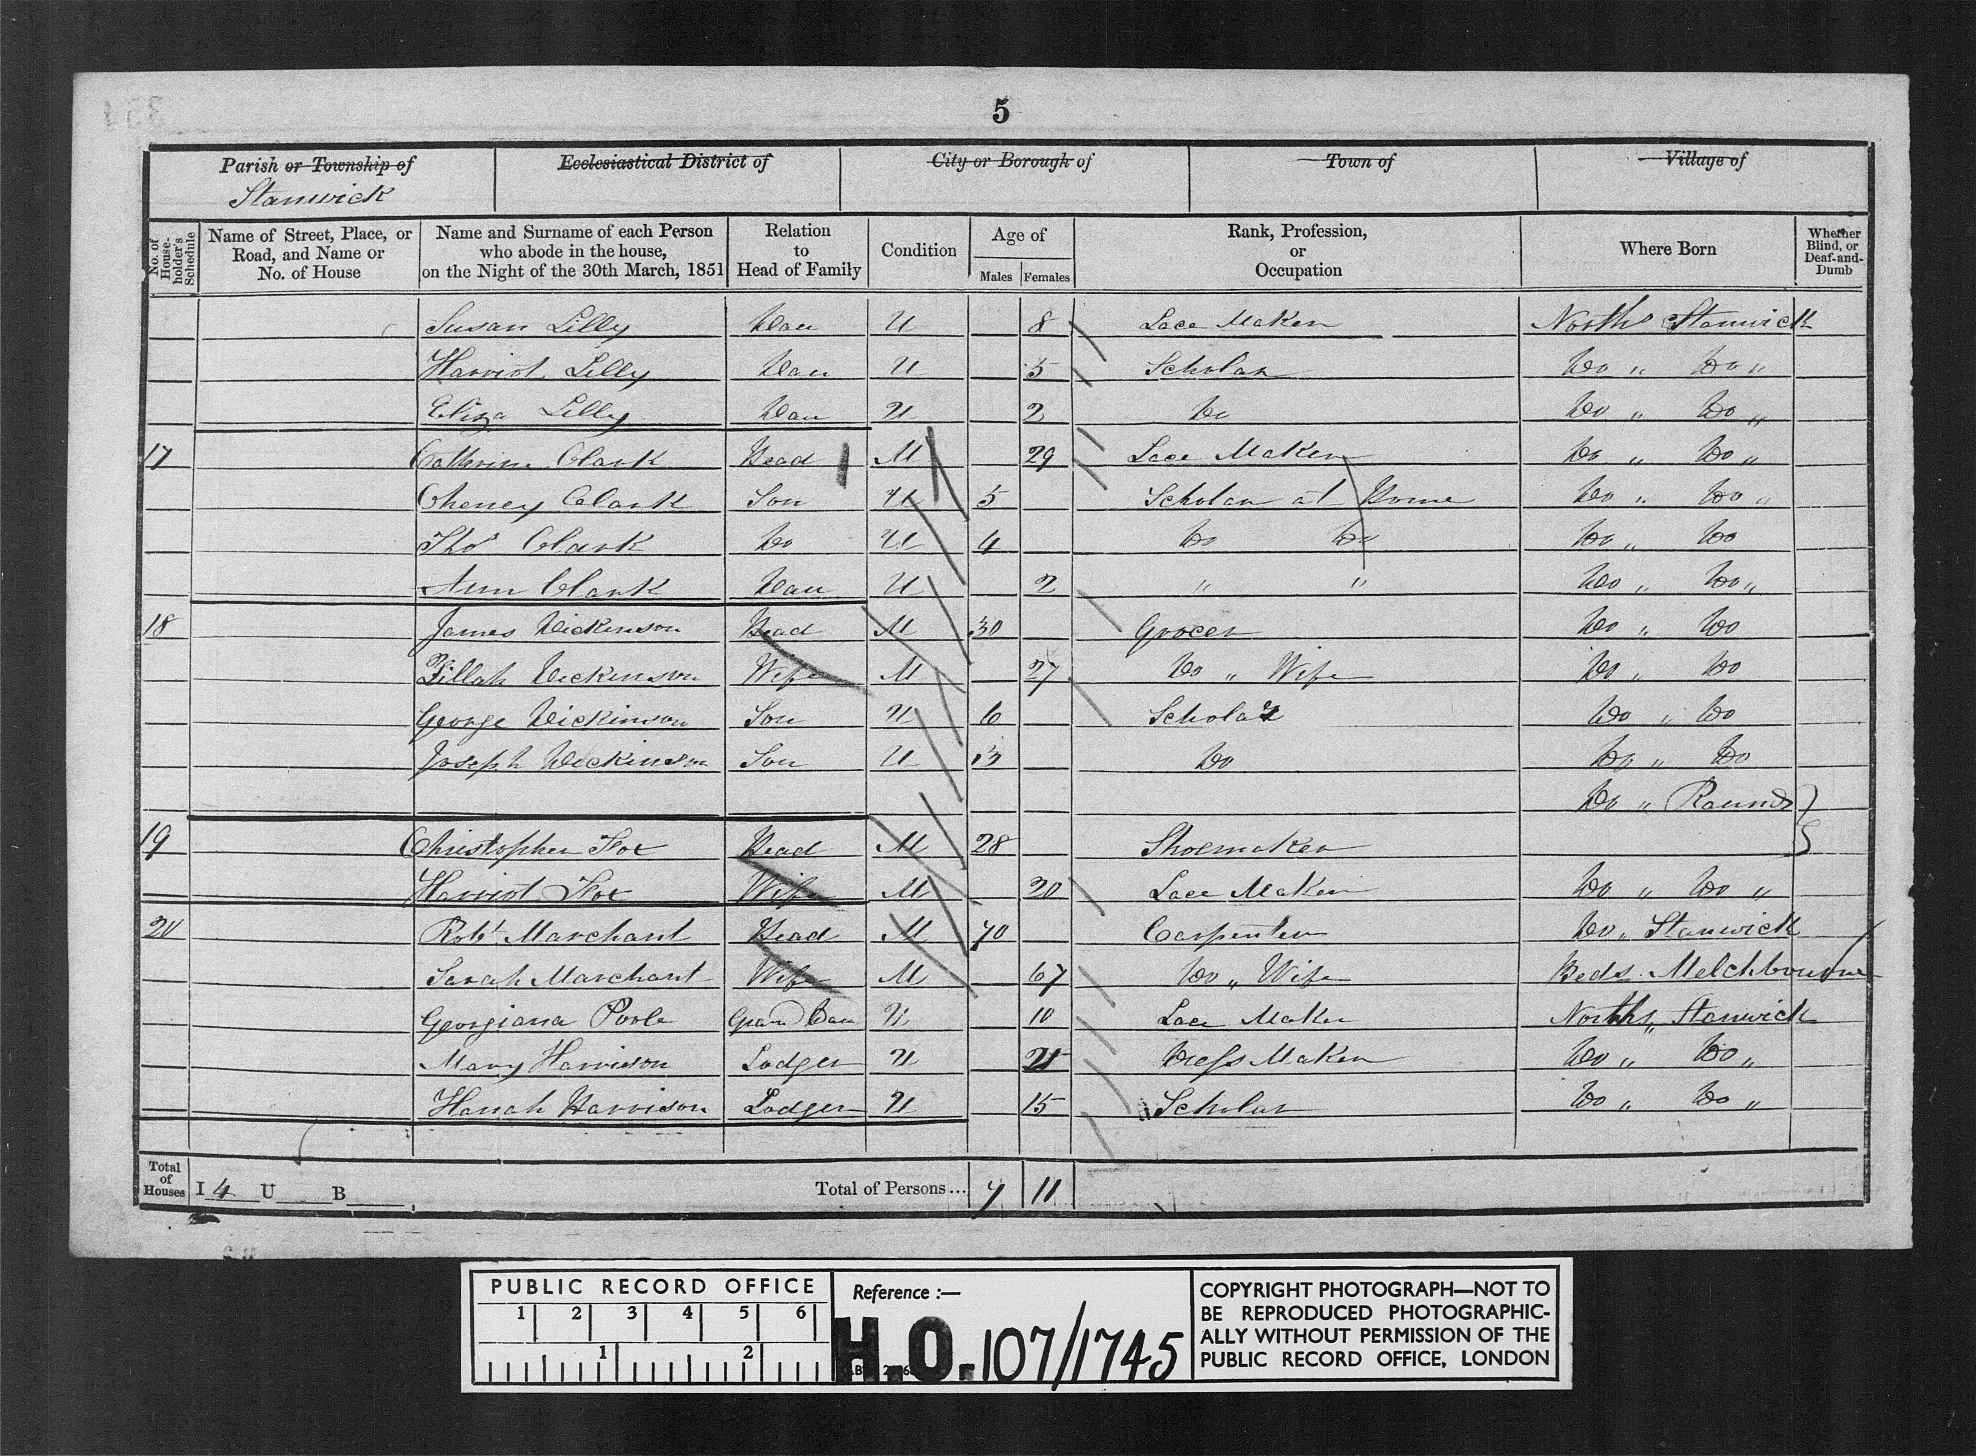 5
Parish or Township of Ecclesiastical District of City or Borough of Town of Village of
Stanwick
No. of House-holder's Schedule Name of Street, Place, or Road, and Name or No. of House Name and Surname of each Person who abode in the house, on the Night of the 30th March, 1851 Relation to Head of Family Condition Age of Males Females Rank, Profession, or Occupation Where Born Whether Blind, or Deaf-and-Dumb
Susan Lilly Dau U 8 Lace Maker North's Stanwick
Harriot Lilly Dau U 5 Scholar Do " Do "
Eliza Lilly Dau U 2 Do Do " Do "
17 Catherine Clark Head M 29 Lace Maker Do " Do "
Cheney Clark Son U 5 Scholar at Home Do " Do "
Thos Clark Do U 4 Do Do Do " Do
Ann Clark Dau U 2 " " Do " Do "
18 James Dickinson Head M 30 Grocer Do " Do
Zillah Dickinson Wife M 27 Do " Wife Do " Do
George Dickinson Son U 6 Scholar Do " Do
Joseph Dickinson Son U 3 Do Do " Do
Do " Raunds
19 Christopher Fox Head M 28 Shoemaker
Harriot Fox Wife M 20 Lace Maker Do " Do "
20 Robt Marchant Head M 70 Carpenter Do " Stanwick
Sarah Marchant Wife M 67 Do " Wife Beds Melchbourne
Georgiana Poole Grand Dau U 10 Lace Maker Norths " Stanwick
Mary Harrison Lodger U Dress Maker Do " Do "
Hanah Harrison Lodger U 15 Scholar Do " Do "
Total of Houses I 4 U B Total of Persons... 7 11
PUBLIC RECORD OFFICE
1 2 3 4 5 6
1 2
Reference :—
H.O. 107/1745
COPYRIGHT PHOTOGRAPH—NOT TO
BE REPRODUCED PHOTOGRAPHIC-
ALLY WITHOUT PERMISSION OF THE
PUBLIC RECORD OFFICE, LONDON